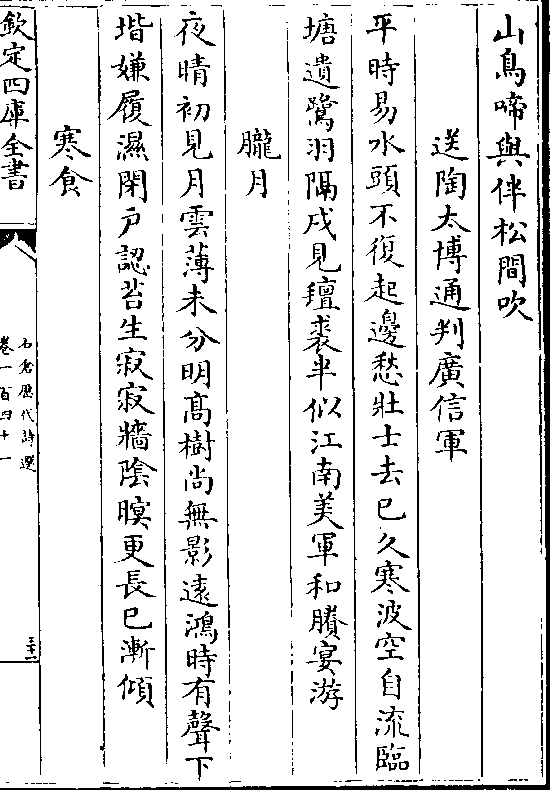 山鳥啼與伴松間吹
送陶太博通判廣信軍
平時易水頭不復起邊愁壯士去已久寒波空自流臨
塘遺鷺羽隔戍見氊裘半似江南美軍和賸宴游
朧月
夜晴初見月雲薄未分明髙樹尚無影遠鴻時有聲下
堦嫌履濕閉戸認苔生寂寂牆陰暝更長已漸傾
寒食
欽定四庫全書
石倉歷代詩選
卷一百四十一